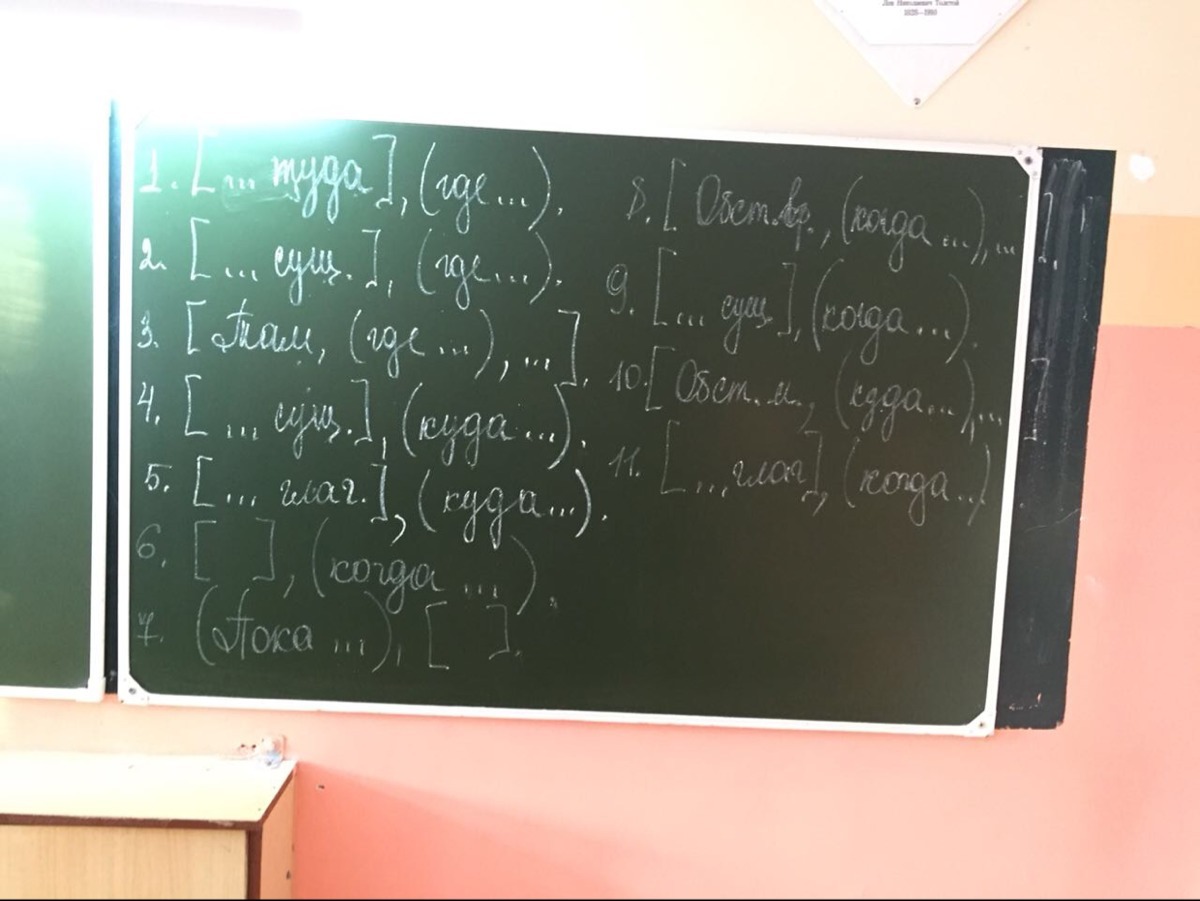 Лев Николаевич Толстой
1828–1910
1. [ ... туда], (где ...).
2. [ ... сущ.], (где ...).
3. [Там, (где ...), ...].
4. [ ... сущ.], (куда ...).
5. [ ... глаг.], (куда ...).
6. [ ], (когда ...).
7. (Пока ...), [ ].
8. [ Обст.вр., (когда ...), ... ].
9. [ ... сущ.], (когда ...).
10. [Обст. м., (куда ...), ... ]
11. [ ... глаг], (когда ..)